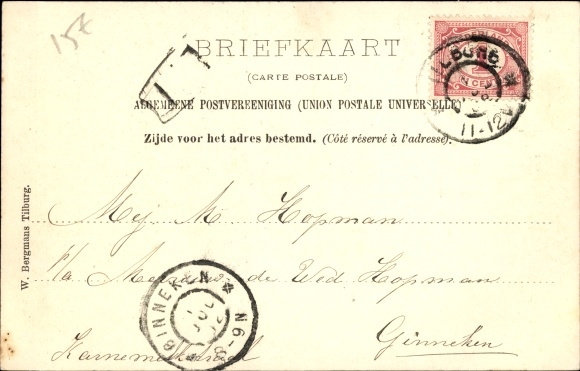 15t
BRIEFKAART
(CARTE POSTALE)
ALGEMEENE POSTVEREENIGING (UNION POSTALE UNIVERSELLE)
Zijde voor het adres bestemd. (Côté réservé à l'adresse).
TILBURG
11-12V
Mej M Hopman
p/a de Wed Hopman
Ginneken
GINNEKEN
JUL
8-9N
W. Bergmans Tilburg.